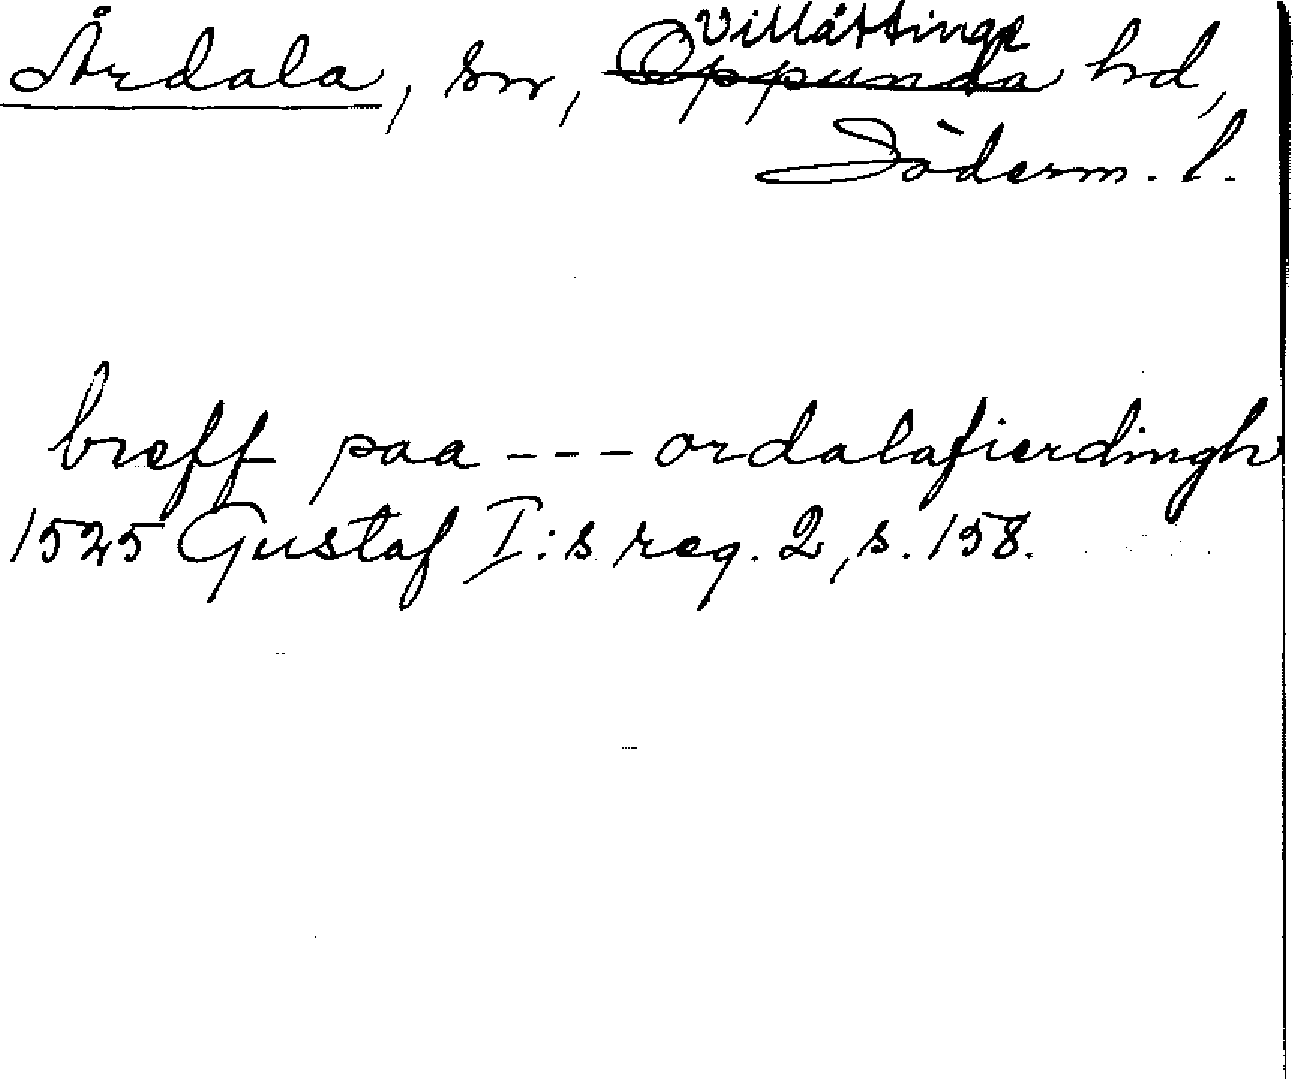 Årdala, sn, Villåttinge ~~Oppunda~~ hd,
Söderm. l.
breff paa --- ordalafierdingh
1525 Gustaf I:s reg. 2, s. 158.